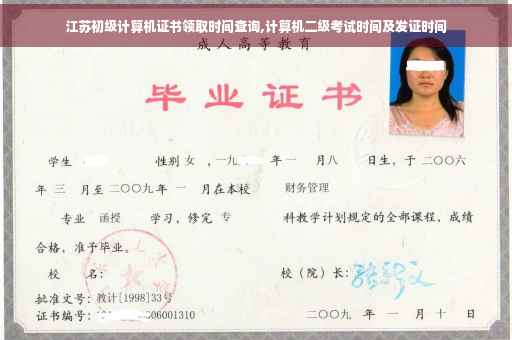 江苏初级计算机证书领取时间查询,计算机二级考试时间及发证时间
成人高等教育
毕业证书
学生 性别 女 ,一九 年 一 月八 日生，于 二〇〇六
年 三 月至 二〇〇九 年 一 月在本校 财务管理
专业 函授 学习，修完 专 科教学计划规定的全部课程，成绩
合格，准予毕业。
校 名： 校（院）长：
批准文号：教计[1998]33号
证书编号： 06001310 二〇〇九 年 一 月 十 日